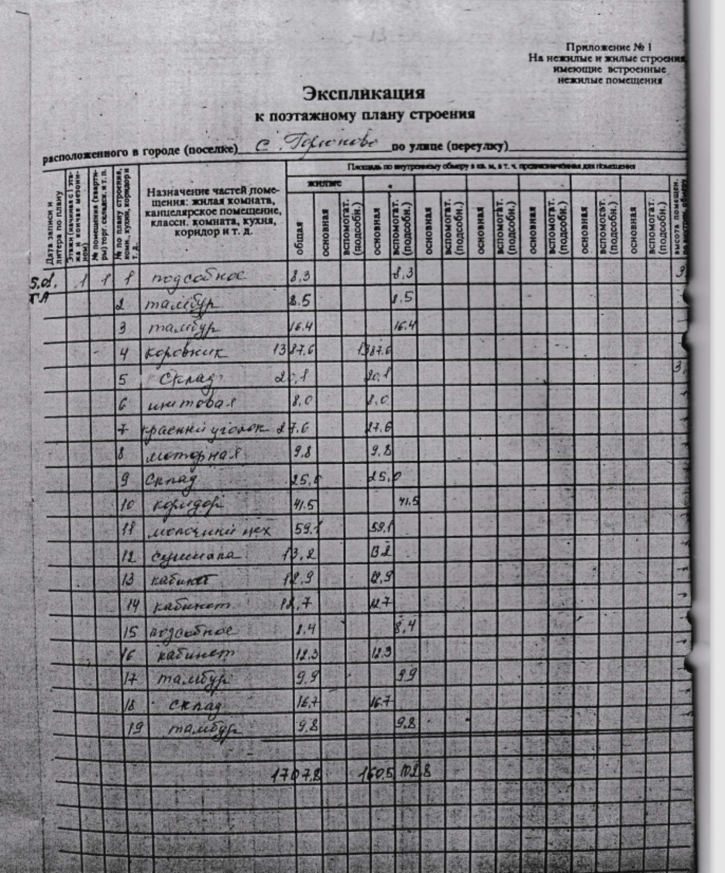 Приложение № 1
На нежилые и жилые строения,
имеющие встроенные
нежилые помещения
Экспликация
к поэтажному плану строения
расположенного в городе (поселке) с. по улице (переулку)
Площадь по внутреннему обмеру в кв. м, в т. ч. предназначенная для помещения
жилые
Дата записи и литера по плану
№ по плану строения,
Назначение частей поме-
щения: жилая комната,
канцелярское помещение,
классн. комната, кухня,
коридор и т. д.
общая
основная
вспомогат. (подсобн.)
основная
вспомогат. (подсобн.)
основная
вспомогат. (подсобн.)
основная
вспомогат. (подсобн.)
основная
вспомогат. (подсобн.)
основная
вспомогат. (подсобн.)
основная
вспомогат. (подсобн.)
1 1 1 подсобное 8.3 8.3
2 тамбур 8.5 8.5
3 тамбур 16.4 16.4
4 коровник 1387.6 1387.6
5 склад 20,1 20,1
6 щитовая 8.0 8.0
7 красный уголок 27.6 27.6
8 моторная 9,8 9,8
9 склад 25,0 25,0
10 коридор 41.5 41.5
11 молочный цех 59.1 59.1
12 13,2 13.2
13 кабинет 12,9 12,9
14 кабинет 12,7 12.7
15 подсобное 8.4 8,4
16 кабинет 12.3 12.3
17 тамбур 9,9 9.9
18 склад 16.7 16.7
19 тамбур 9.8 9.8
1707.8 1605 102.8